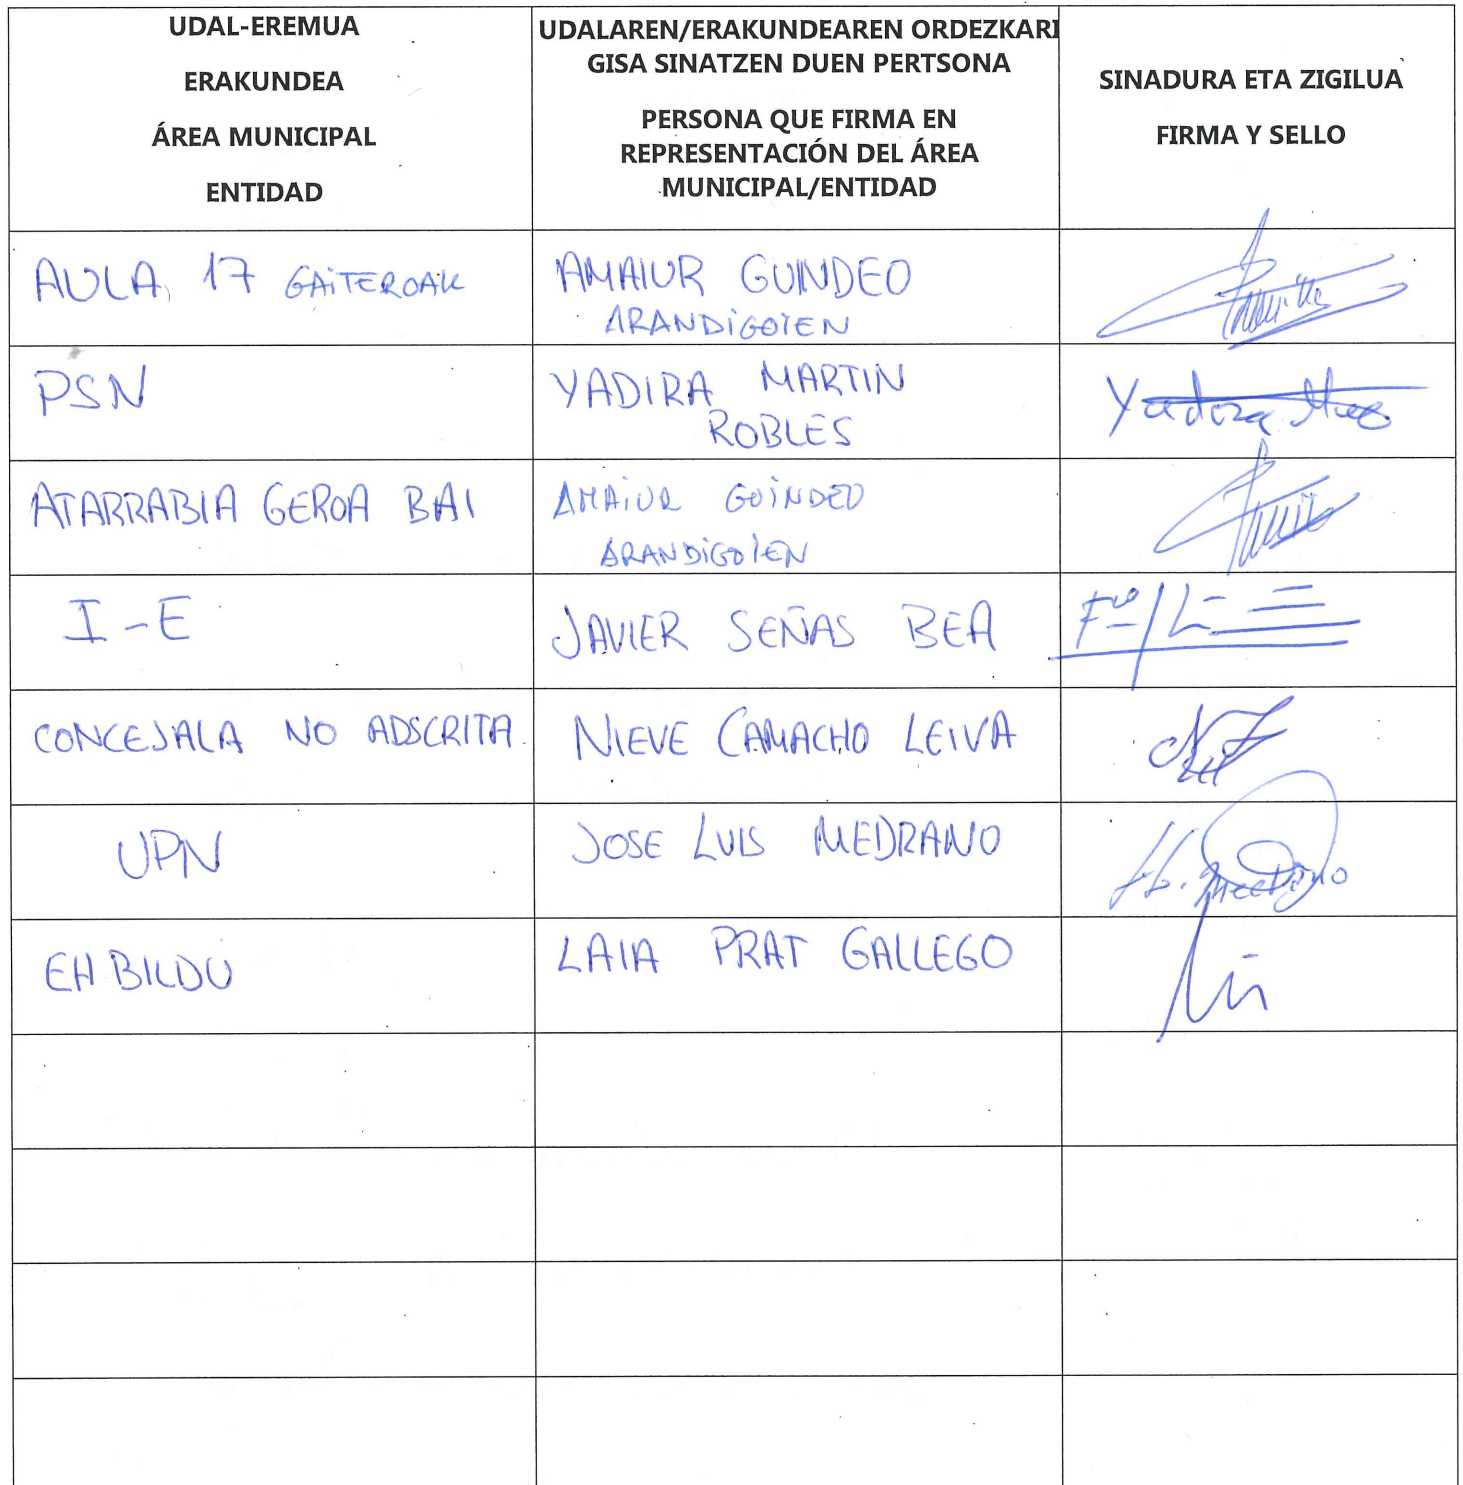 UDAL-EREMUA
ERAKUNDEA
ÁREA MUNICIPAL
ENTIDAD
UDALAREN/ERAKUNDEAREN ORDEZKARI
GISA SINATZEN DUEN PERTSONA
PERSONA QUE FIRMA EN
REPRESENTACIÓN DEL ÁREA
MUNICIPAL/ENTIDAD
SINADURA ETA ZIGILUA
FIRMA Y SELLO
AULA 17 GAITEROAK
AMAIUR GUINDEO
ARANDIGOIEN
PSN
YADIRA MARTIN
ROBLES
ATARRABIA GEROA BAI
AMAIUR GUINDEO
ARANDIGOIEN
I-E
JAVIER SEÑAS BEA
CONCEJALA NO ADSCRITA
NIEVE CAMACHO LEIVA
UPN
JOSE LUIS MEDRANO
EH BILDU
LAIA PRAT GALLEGO